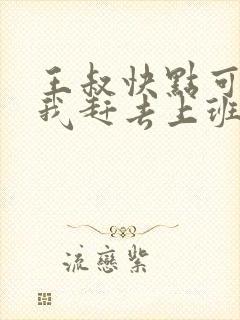 王叔快點可
我赶去上班
流戀紫